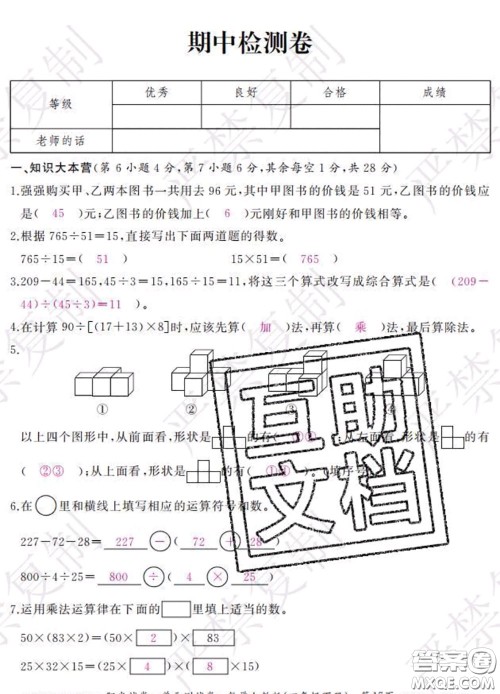 期中检测卷
等级 优秀 良好 合格 成绩
老师的话
一、知识大本营(第6小题4分,第7小题6分,其余每空1分,共28分)
1.强强购买甲、乙两本图书一共用去96元,其中甲图书的价钱是51元,乙图书的价钱应
是( 45 )元;乙图书的价钱加上( 6 )元刚好和甲图书的价钱相等。
2.根据765÷51=15,直接写出下面两道题的得数。
765÷15=( 51 ) 15×51=( 765 )
3.209-44=165,45÷3=15,165÷15=11,将这三个算式改写成综合算式是( (209-
44)÷(45÷3)=11 )。
4.在计算90÷[(17+13)×8]时,应该先算( 加 )法,再算( 乘 )法,最后算除法。
5.
① ②
以上四个图形中,从前面看,形状是 的有( );从左面看,形状是 的有
( ②③ );从上面看,形状是 的有( )。(填序号)
6.在○里和横线上填写相应的运算符号和数。
227-72-28= 227 - ( 72 + 28 )
800÷4÷25= 800 ÷ ( 4 × 25 )
7.运用乘法运算律在下面的□里填上适当的数。
50×(83×2)=(50× 2 )× 83
25×32×15=(25× 4 )×( 8 ×15)
严禁复制
互助文档
答案圈
MXQE.COM